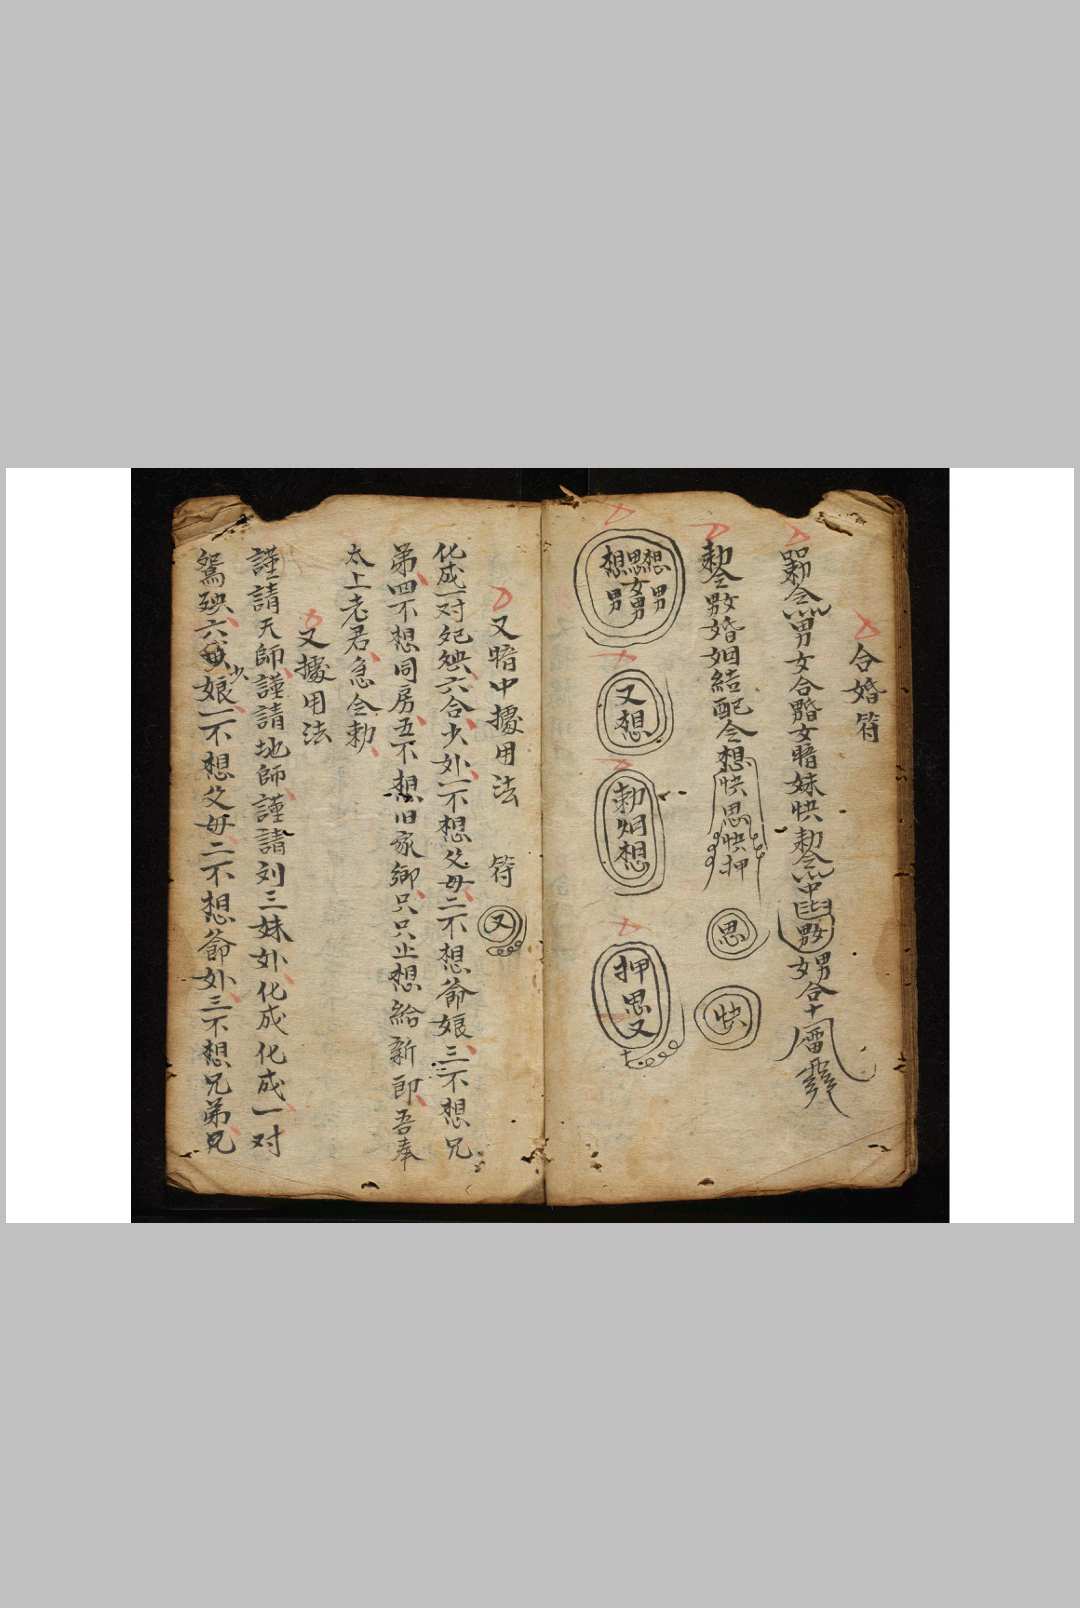 合婚符
勅令男女合婚女暗妹快勅令中男女合
勅令男女婚姻結配令想快思快押
思
快
想思想男女男男
又想
勅姻想
押思又
又暗中㩀用法 符 又
化成一对妃殃六合少外一不想父母二不想爺娘三不想兄
弟四不想同房五不想旧家鄉只只止想給新郎吾奉
太上老君急令勅
又據用法
謹請天師謹請地師謹請刘三妹外化成化成一对
鴛殃六少娘一不想父母二不想爺外三不想兄弟兄